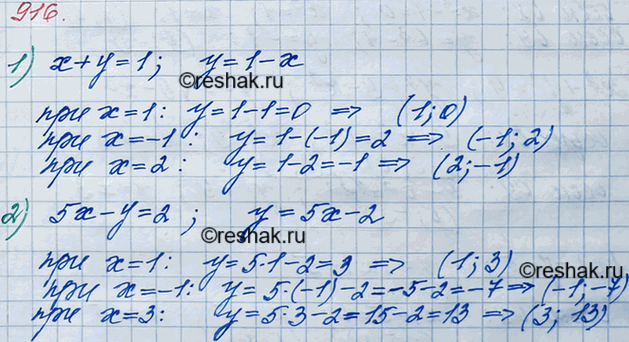 916.
1) x+y=1; y=1-x
©reshak.ru
при x=1: y=1-1=0 => (1;0)
при x=-1: y=1-(-1)=2 => (-1;2)
при x=2: y=1-2=-1 => (2;-1)
2) 5x-y=2; y=5x-2
©reshak.ru
при x=1: y=5·1-2=3 => (1;3)
©reshak.ru
при x=-1: y=5·(-1)-2=-5-2=-7=>(-1;-7)
при x=3: y=5·3-2=15-2=13=>(3; 13)